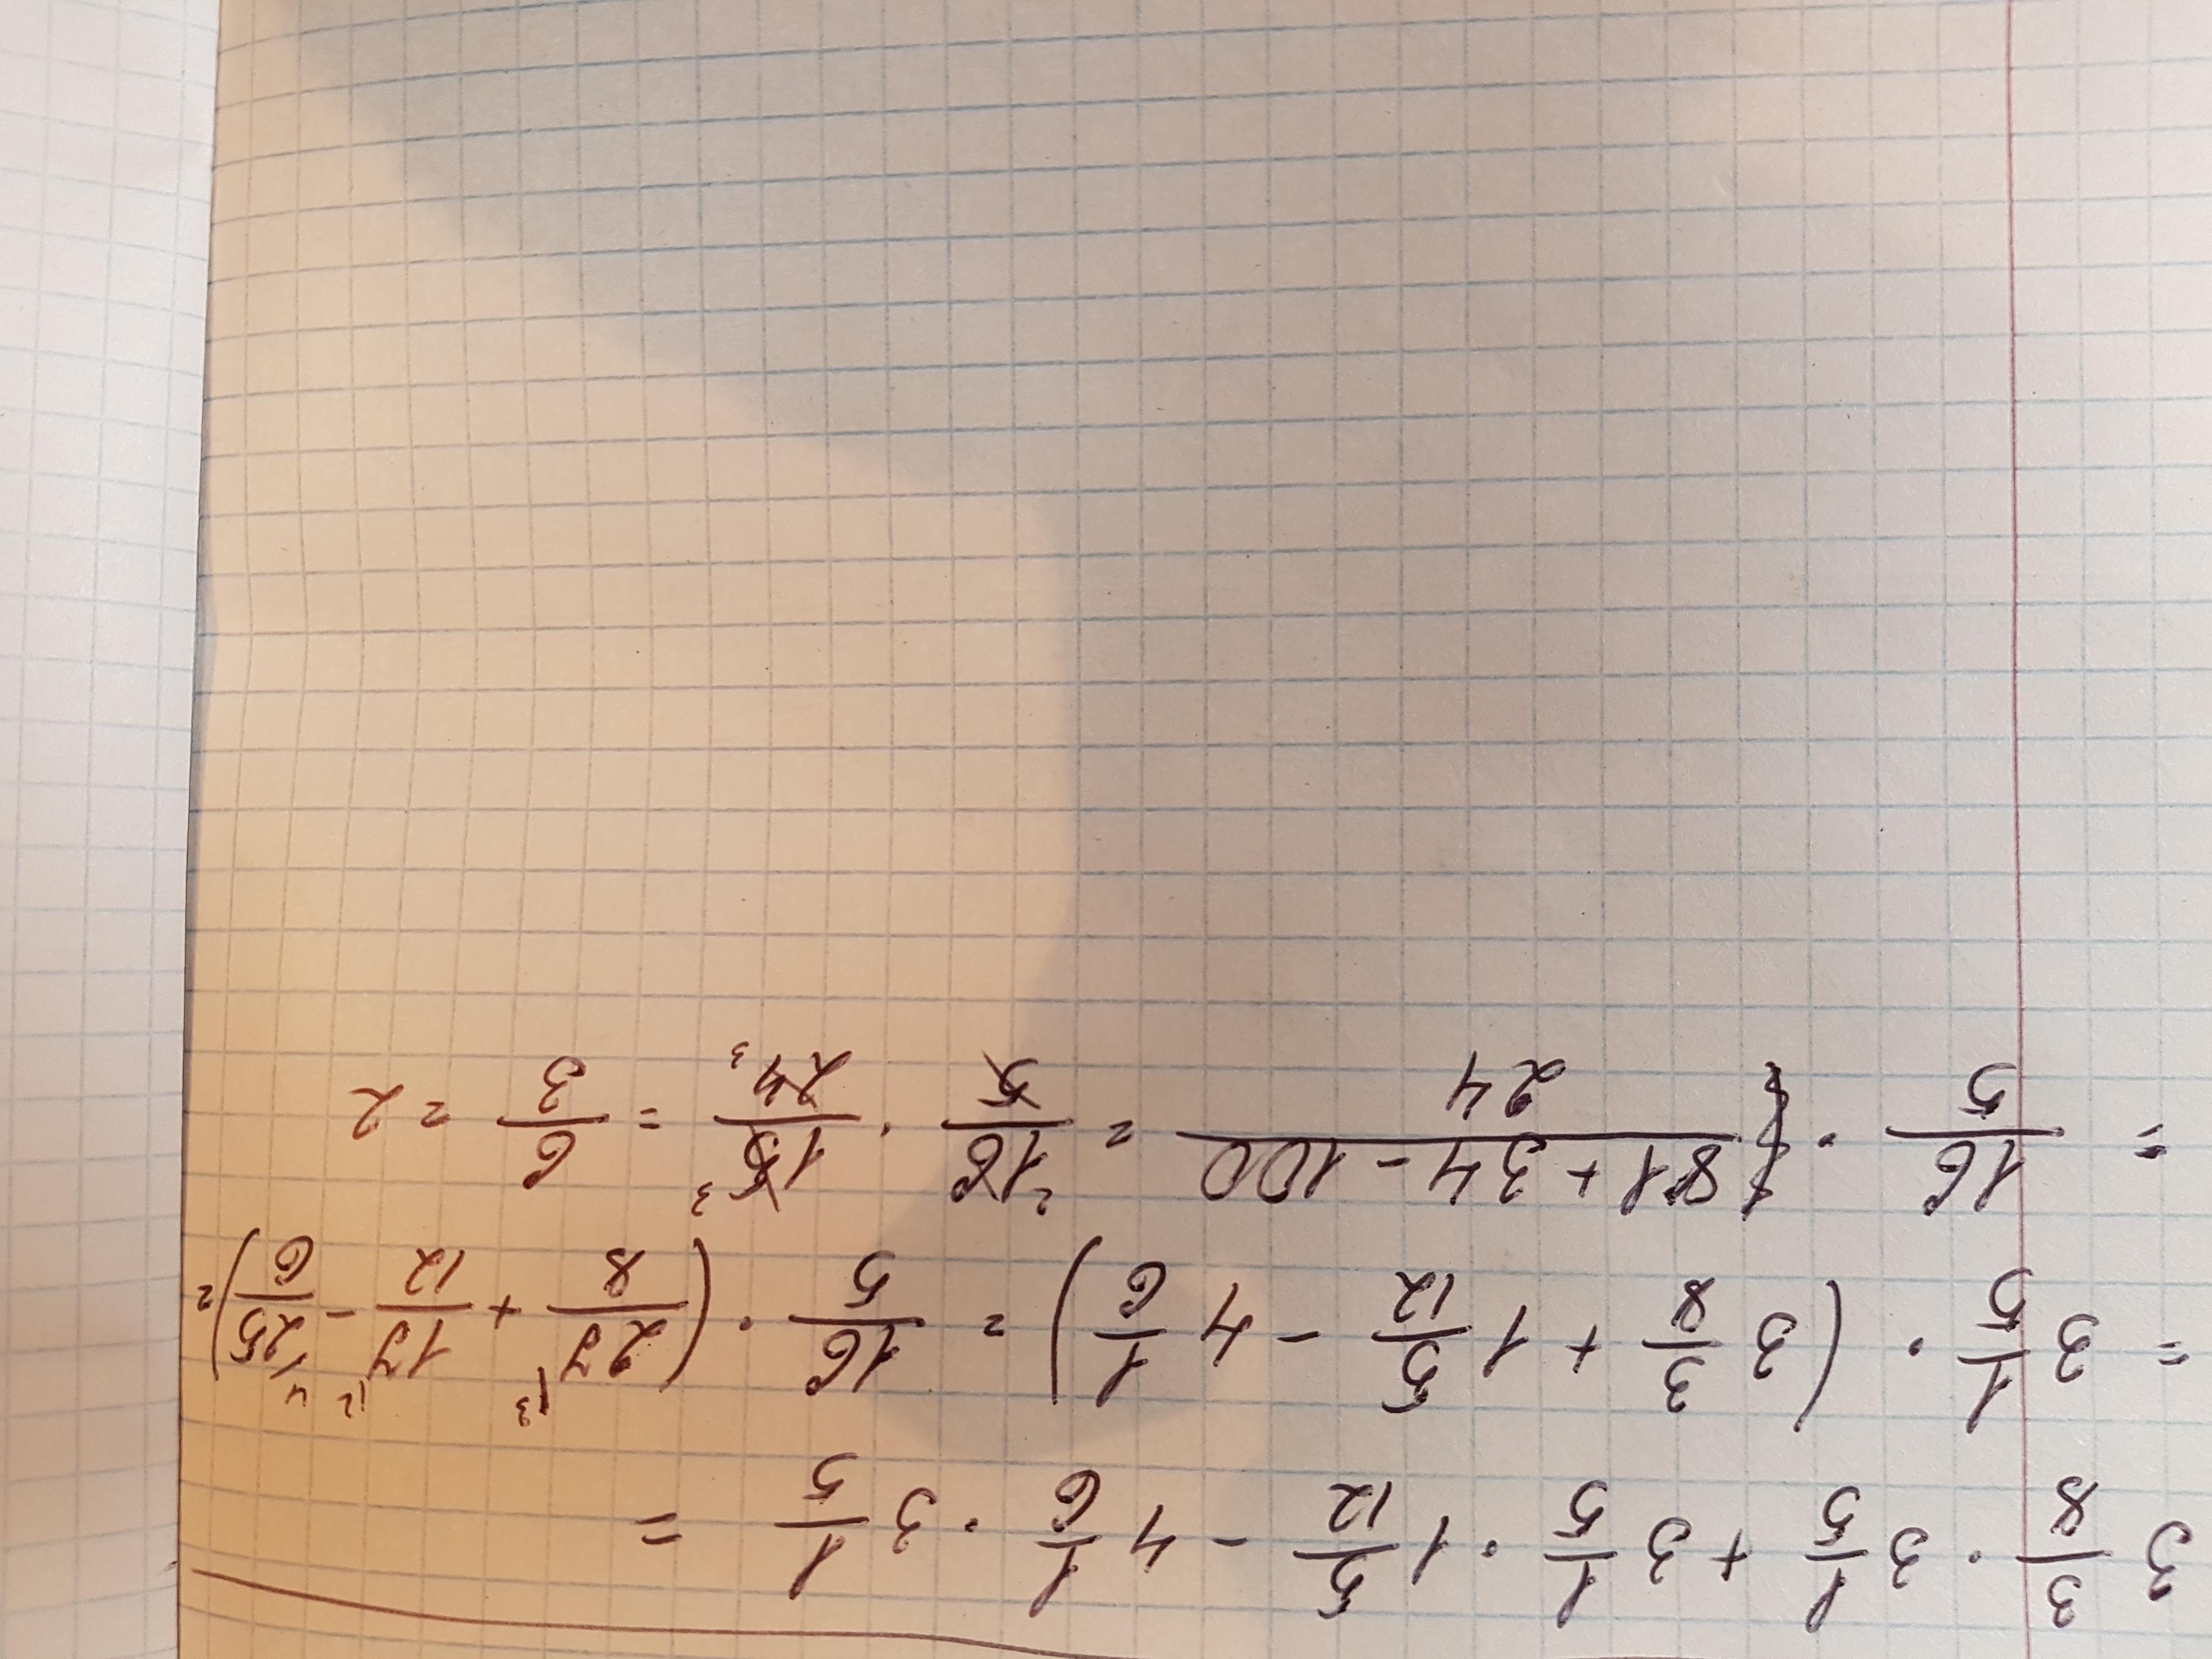 3 3/8 · 3 1/5 + 3 1/5 · 1 5/12 - 4 1/6 · 3 1/5 =
= 3 1/5 · (3 3/8 + 1 5/12 - 4 1/6) = 16/5 · (27/8 + 17/12 - 25/6) =
= 16/5 · (81 + 34 - 100)/24 = 16/5 · 15/24 = 6/3 = 2